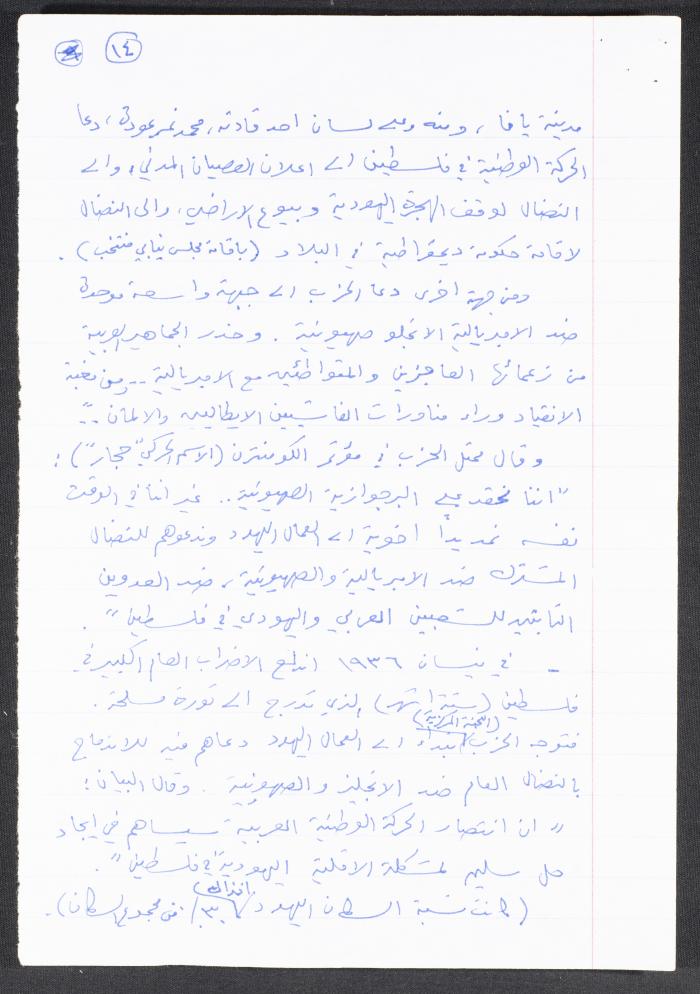 ١٤
مدينة يافا، ومنه وعلى لسان احد قادته، محمد نمر عودة، دعا
الحركة الوطنية في فلسطين الى اعلان العصيان المدني، والى
النضال لوقف الهجرة اليهودية وبيوع الاراضي، والى النضال
لاقامة حكومة ديمقراطية في البلاد (باقامة مجلس نيابي منتخب).
ومن جهة اخرى دعا الحزب الى جبهة واسعة موحدة
ضد الامبريالية الانجلو صهيونية. وحذر الجماهير العربية
من زعمائها العاجزين والمتواطئين مع الامبريالية.. ومن مغبة
الانقياد وراء مناورات الفاشيين الايطاليين والالمان..
وقال ممثل الحزب في مؤتمر الكومنترن (الاسم الحركي "حجار"):
"اننا نحقد على البرجوازية الصهيونية.. غير اننا في الوقت
نفسه نمد يداً اخوية الى العمال اليهود وندعوهم للنضال
المشترك ضد الامبريالية والصهيونية، ضد العدوين
للشعبين العربي واليهودي في فلسطين".
- في نيسان ١٩٣٦ اندلع الاضراب العام الكبير في
فلسطين (ستة اشهر) الذي تدرج الى ثورة مسلحة.
(اللجنة المركزية)
فتوجه الحزب بنداء الى العمال اليهود دعاهم فيه للاندماج
بالنضال العام ضد الانجليز والصهيونية. وقال البيان:
"ان انتصار الحركة الوطنية العربية سيساهم في ايجاد
حل سليم لمشكلة الاقلية اليهودية في فلسطين".
آنذاك
(كانت نسبة السكان اليهود ٣٠٪ من مجموع السكان).